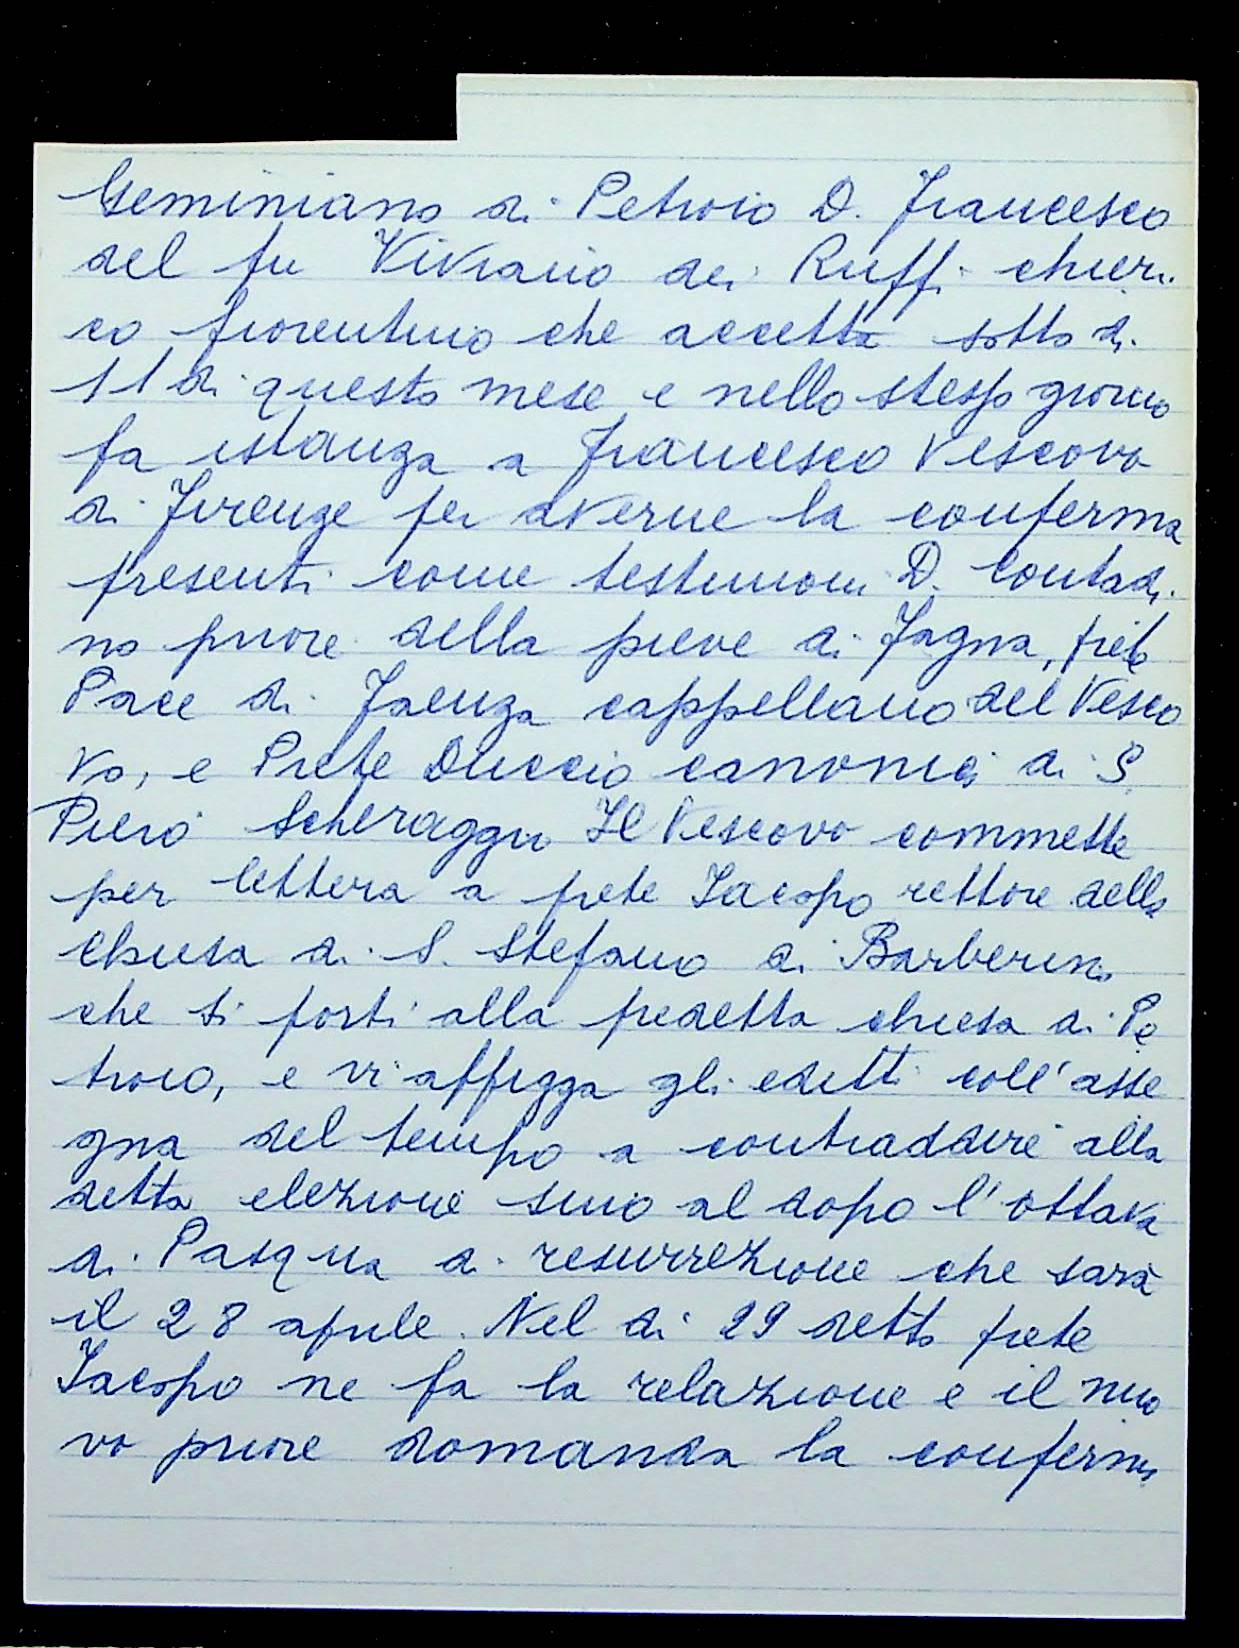 Geminiano di Petroio D. Francesco
del fu Viviano dei Ruffi chieri
co fiorentino che accetta sotto di
11 di questo mese e nello stesso giorno
fa istanza a Francesco Vescovo
di Firenze per averne la conferma
presenti come testimoni D. Contadi
no priore della pieve di Fagna, prete
Pace di Faenza cappellano del Vesco
vo, e Prete Duccio canonici di S.
Piero Scheraggio Il Vescovo commette
per lettera a prete Iacopo rettore della
Chiesa di S. Stefano di Barberino
che si porti alla predetta chiesa di Pe
troio, e vi affigga gli editti coll'asse
gna del tempo a contraddire alla
detta elezione sino al dopo l'ottava
di Pasqua di resurrezione che sarà
il 28 aprile. Nel di 29 detto prete
Iacopo ne fa la relazione e il nuo
vo priore domanda la conferma